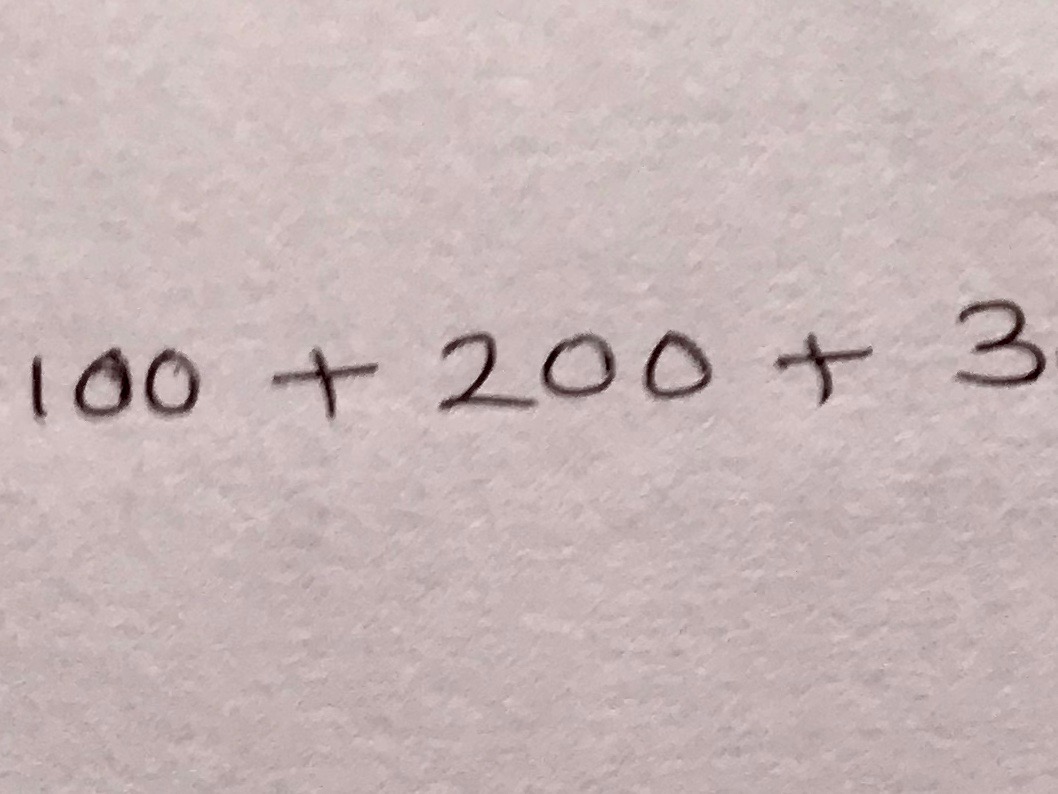 100 + 200 + 3